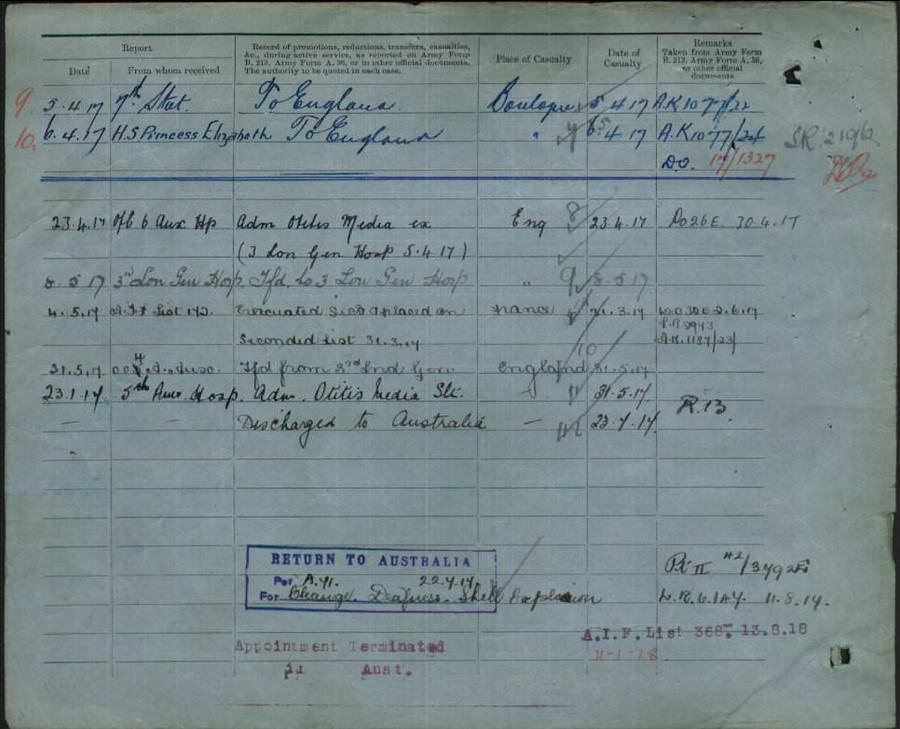 Report
Record of promotions, reductions, transfers, casualties, &c., during active service, as reported on Army Form B. 213, Army Form A. 36, or in other official documents. The authority to be quoted in each case.
Place of Casualty
Date of Casualty
Remarks
Taken from Army Form B. 213, Army Form A. 36, or other official documents
Date
From whom received
9. 5.4.17 7th Stat. To England Boulogne 5.4.17 A.K 1077/22
10. 6.4.17 H.S Princess Elizabeth To England " 6.4.17 A.K 1077/24
D.O. 17/1327
S.R. 2196
23.4.17 6 Aux Hp Adm Otitis Media ex Eng 8 23.4.17 Do26E 30.4.17
(3 Lon Gen Hosp 5.4.17)
8.5.17 3rd Lon Gen Hosp. Tfd. to 3 Lon Gen Hosp " 9 8.5.17
4.5.17 List 172. Evacuated Sick & placed on France 31.3.17
Seconded list 31.3.17
A.K.1187/23
31.5.17 Tfd from 3rd Lnd Gen. England 10 31.5.17
5th Aux. Hosp. Adm. Otitis Media Slt. 31.5.17
R.13
— — Discharged to Australia — 23.7.17
RETURN TO AUSTRALIA
Per A.41. 22.7.17
For Change. Deafness. Shell Explosion
11.8.17.
A.I.F. List 368. 13.8.18
11-1-18
Appointment Terminated
in Aust.